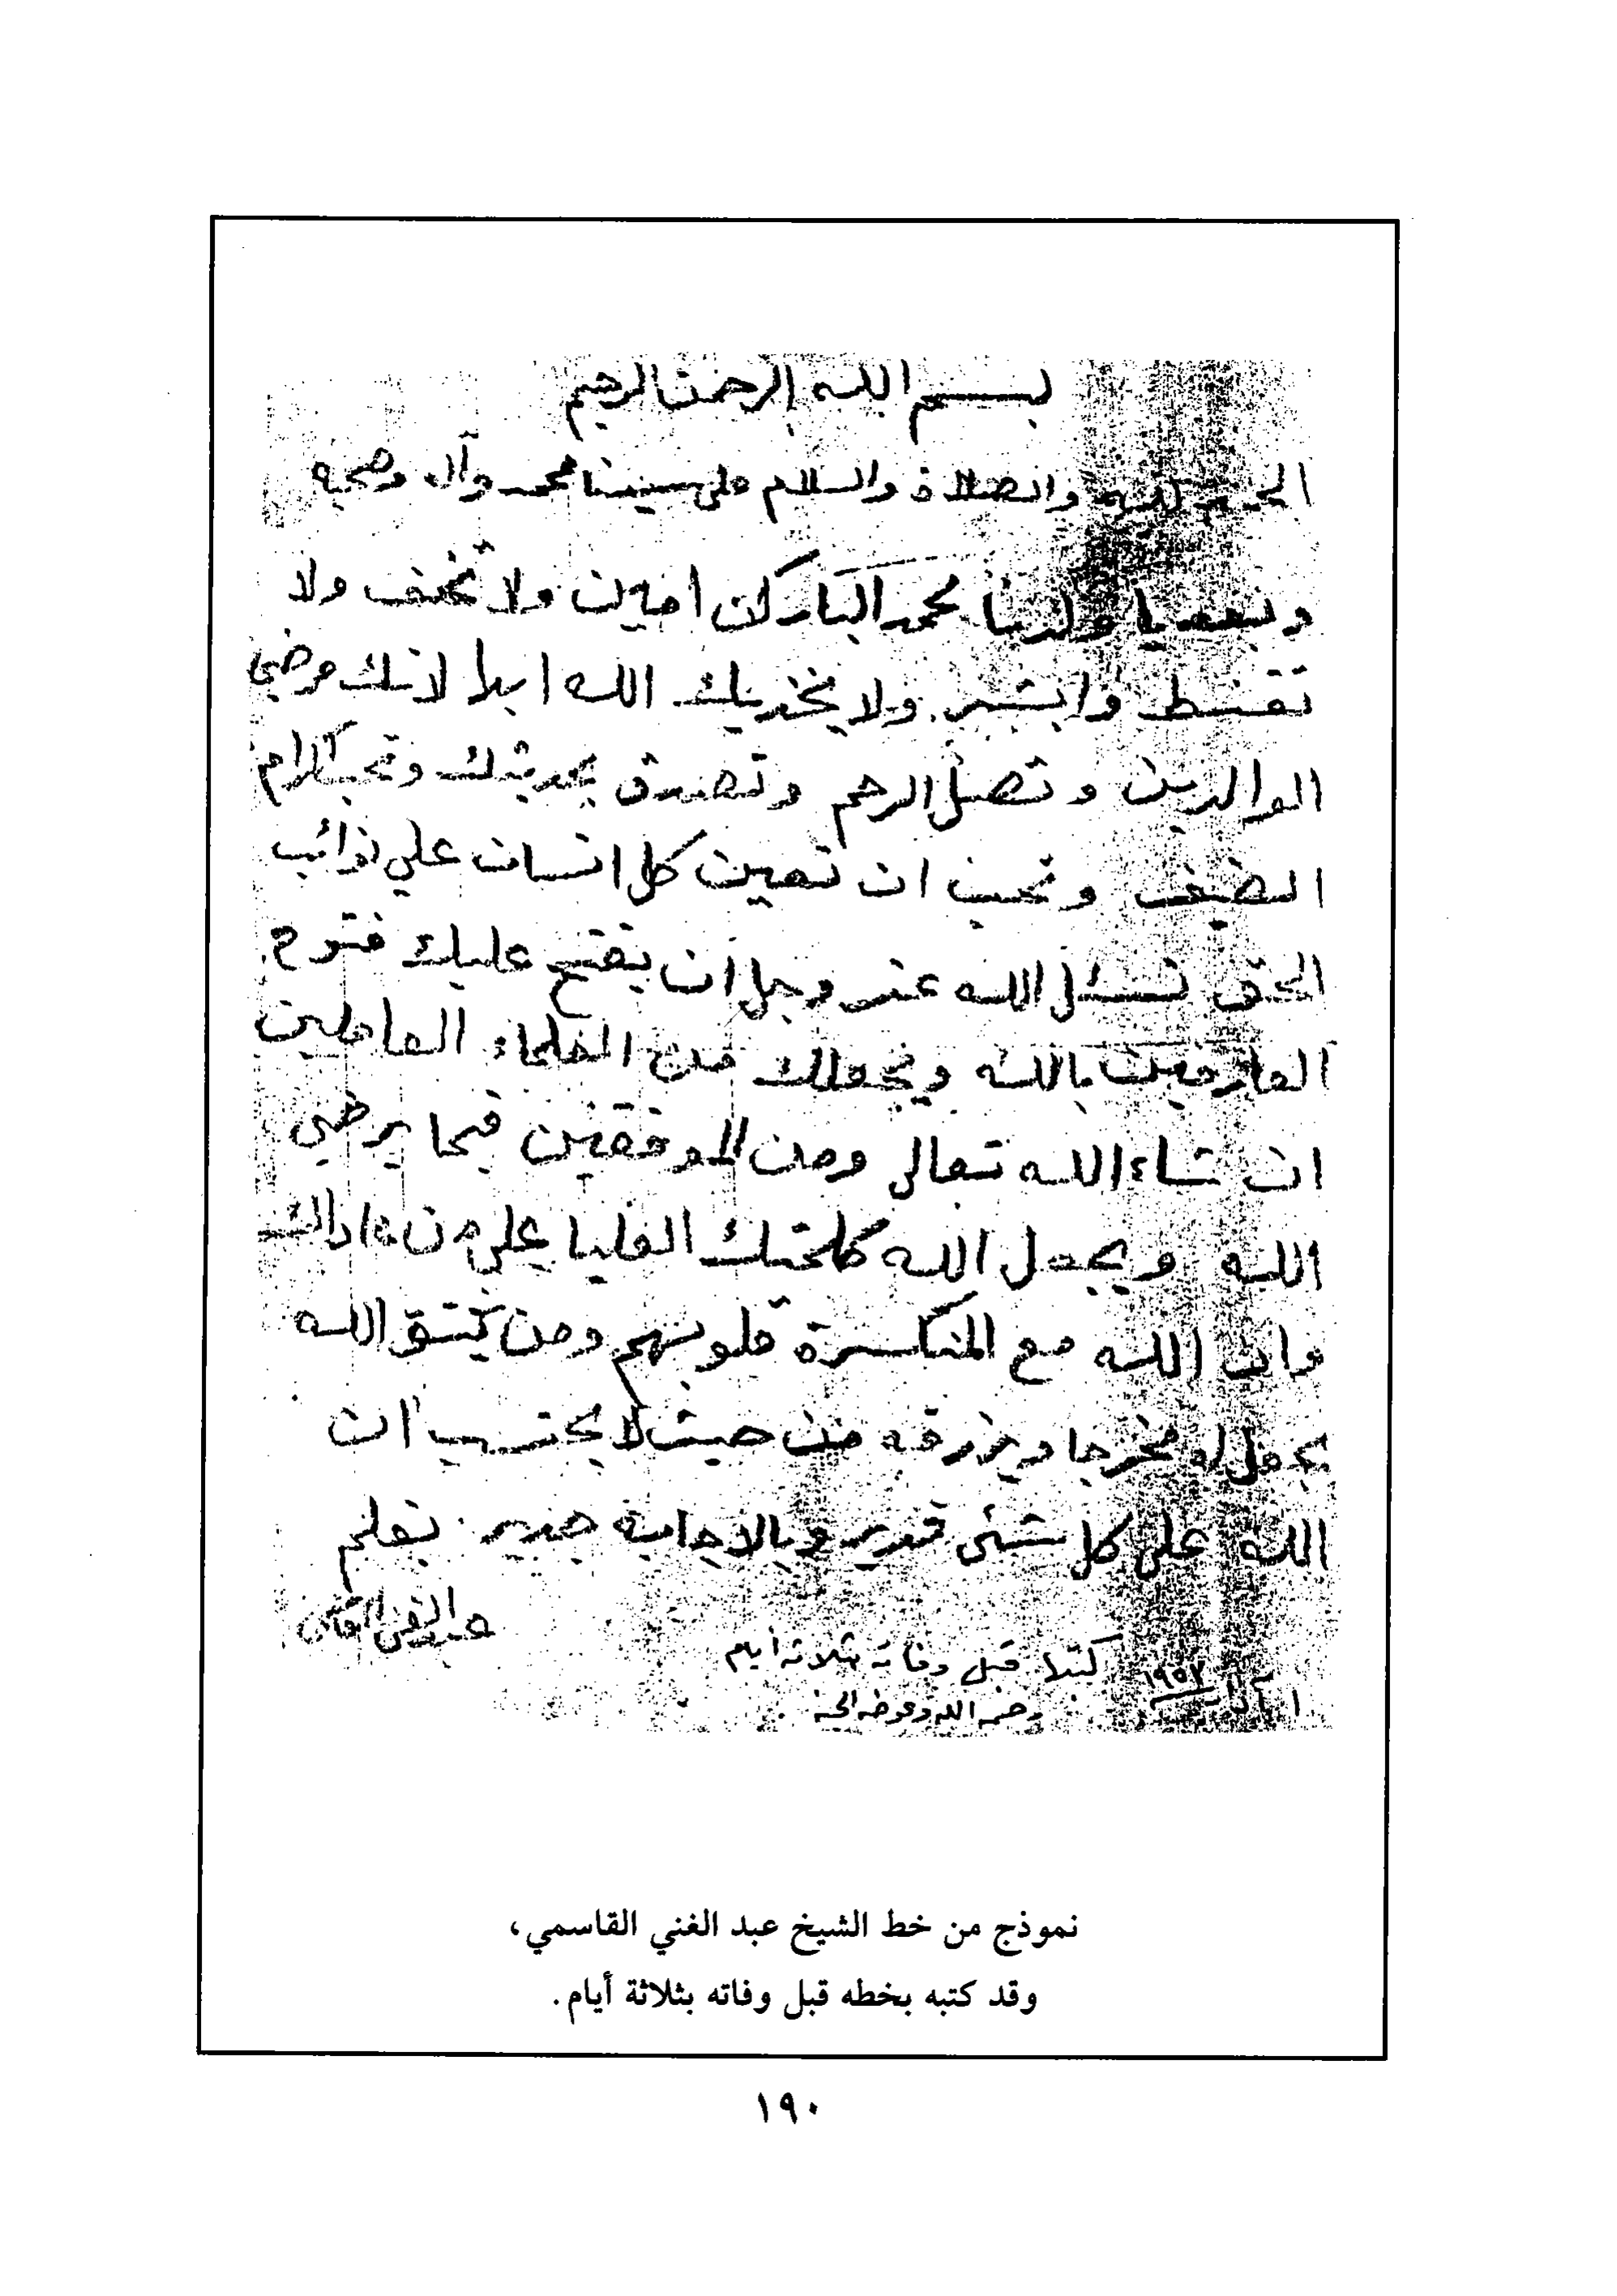 بسم الله الرحمن الرحيم
الحمد لله والصلاة والسلام على سيدنا محمد وآله وصحبه
وبعد يا ولدنا محمد المبارك كن امين ولا تخف ولا
تقنط وابشر ولا يخزيك الله ابدا لانك مرضي
الوالدين وتصل الرحم وتصدق بحديثك وتحب اكرام
الضيف وتحب ان تعين كل انسان على نوائب
الحق نسئل الله عز وجل ان يفتح عليك فتوح
العارفين بالله ويجعلك من العلماء العاملين
ان شاء الله تعالى ومن الموفقين فيما يرضي
الله ويجعل الله كلمتك العليا على من عاداك
وان الله مع المنكسرة قلوبهم ومن يتق الله
يجعل له مخرجا ويرزقه من حيث لا يحتسب ان
الله على كل شئ قدير وبالاجابة جدير بقلم
عبد الغني القاسمي
١٩٥٧
كتبها قبل وفاته بثلاثة أيام
رحمه الله وعوضه الجنة
نموذج من خط الشيخ عبد الغني القاسمي،
وقد كتبه بخطه قبل وفاته بثلاثة أيام.
١٩٠